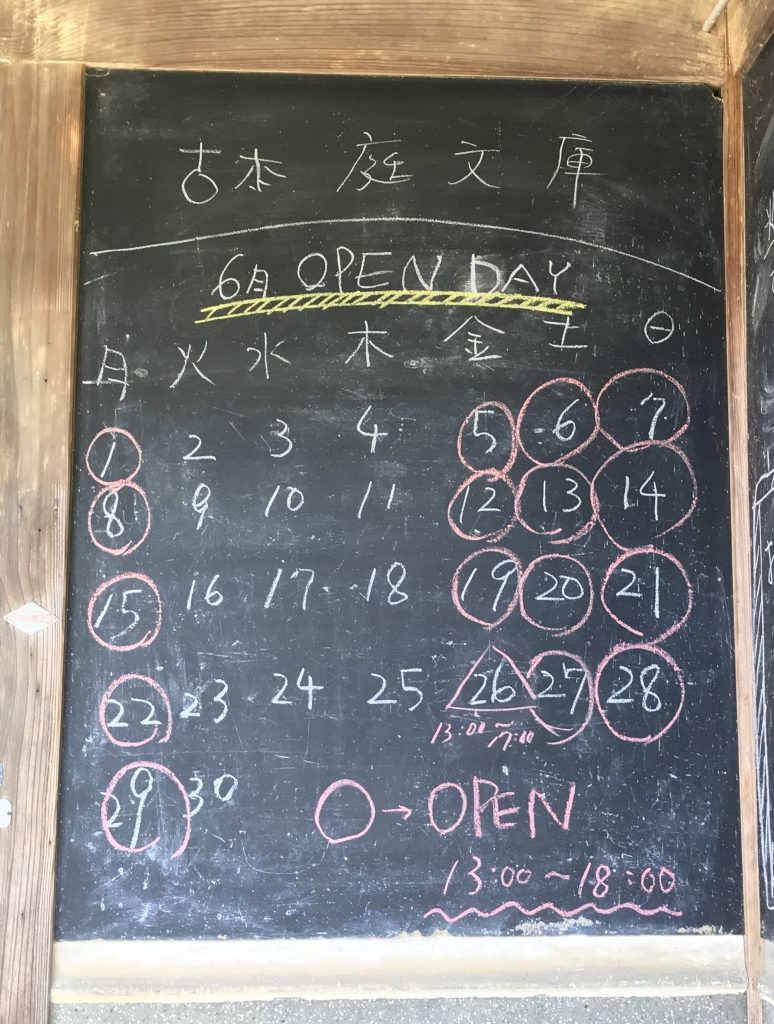 古本 庭文庫
6月 OPEN DAY
月 火 水 木 金 土 日
1 2 3 4 5 6 7
8 9 10 11 12 13 14
15 16 17 18 19 20 21
22 23 24 25 26 27 28
13:00~17:00
29 30
○→OPEN
13:00~18:00